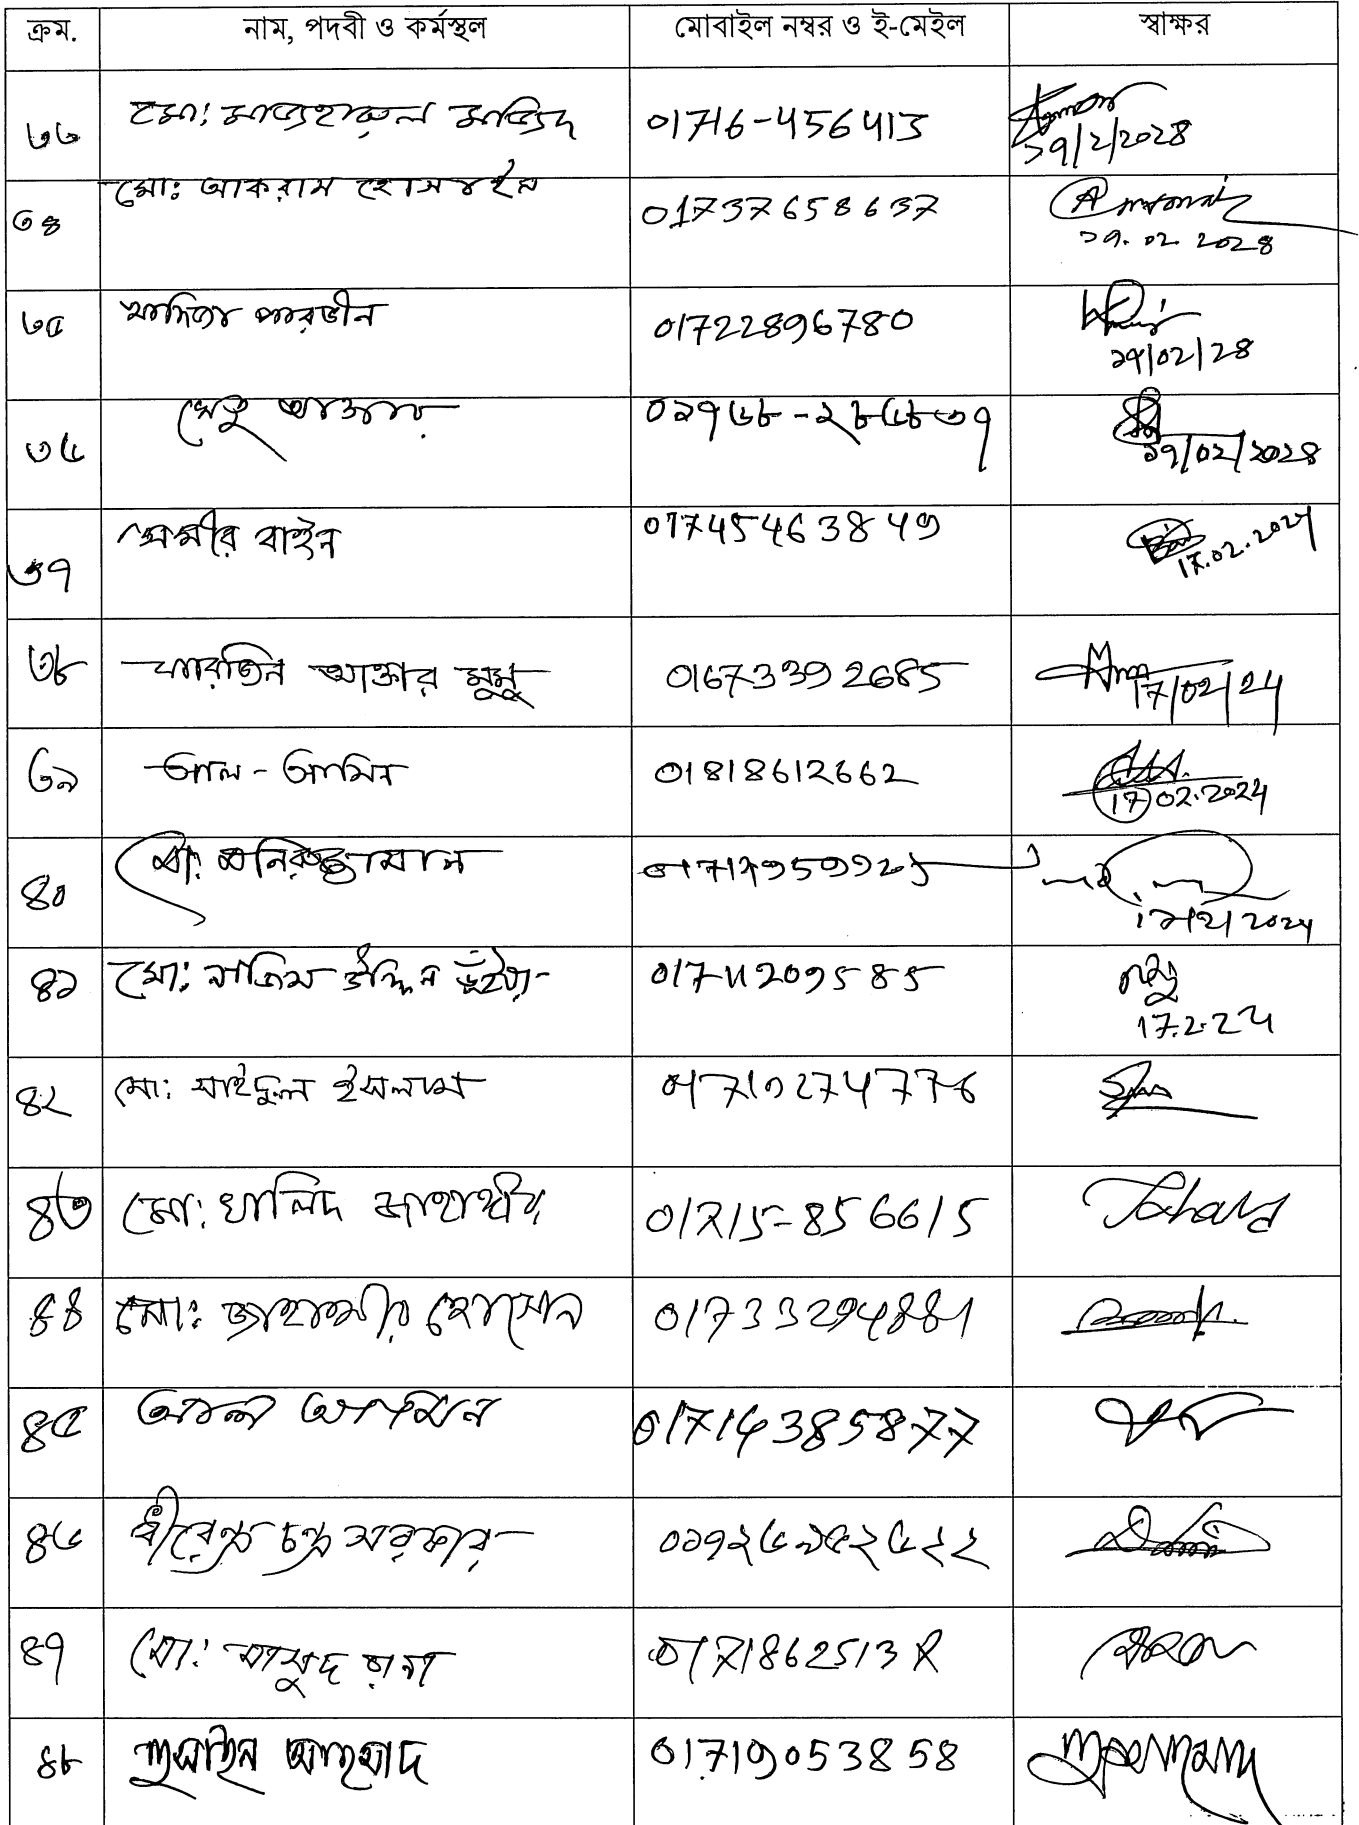 ক্রম. নাম, পদবী ও কর্মস্থল মোবাইল নম্বর ও ই-মেইল স্বাক্ষর
৩৩ মো: মাজহারুল মাজিদ 01716-456413 ১৭/2/2028
৩৪ মোঃ আকরাম হোসাইন 01737658637 ১৭.02.2028
৩৫ খাদিজা পারভীন 01722896780 ১৭/02/28
৩৬ সেতু আক্তার ০১৭৬৮-২৮৫৮৩৭ ১৭/02/2028
৩৭ সমীর বাইন 01745463849 17.02.2024
৩৮ ফারহিন আক্তার মুমু 01673392685 17/02/24
৩৯ আল-আমিন 01818612662 17/02.2024
৪০ মো: মনিরুজ্জামান
৪১ মো: নাজিম উদ্দিন ভূঁইয়া 01711209585 17.2.24
৪২ মো: সাইদুল ইসলাম 01710274776
৪৩ মো: খালিদ জাহাঙ্গীর 01715-856615
৪৪ মো: জাহাঙ্গীর হোসেন 01733294881
৪৫ আল আমিন 01714385877
৪৬ ধীরেন্দ্র চন্দ্র সরকার
৪৭ মো: মাসুদ রানা
৪৮ হুসাইন আহমাদ 01719053858